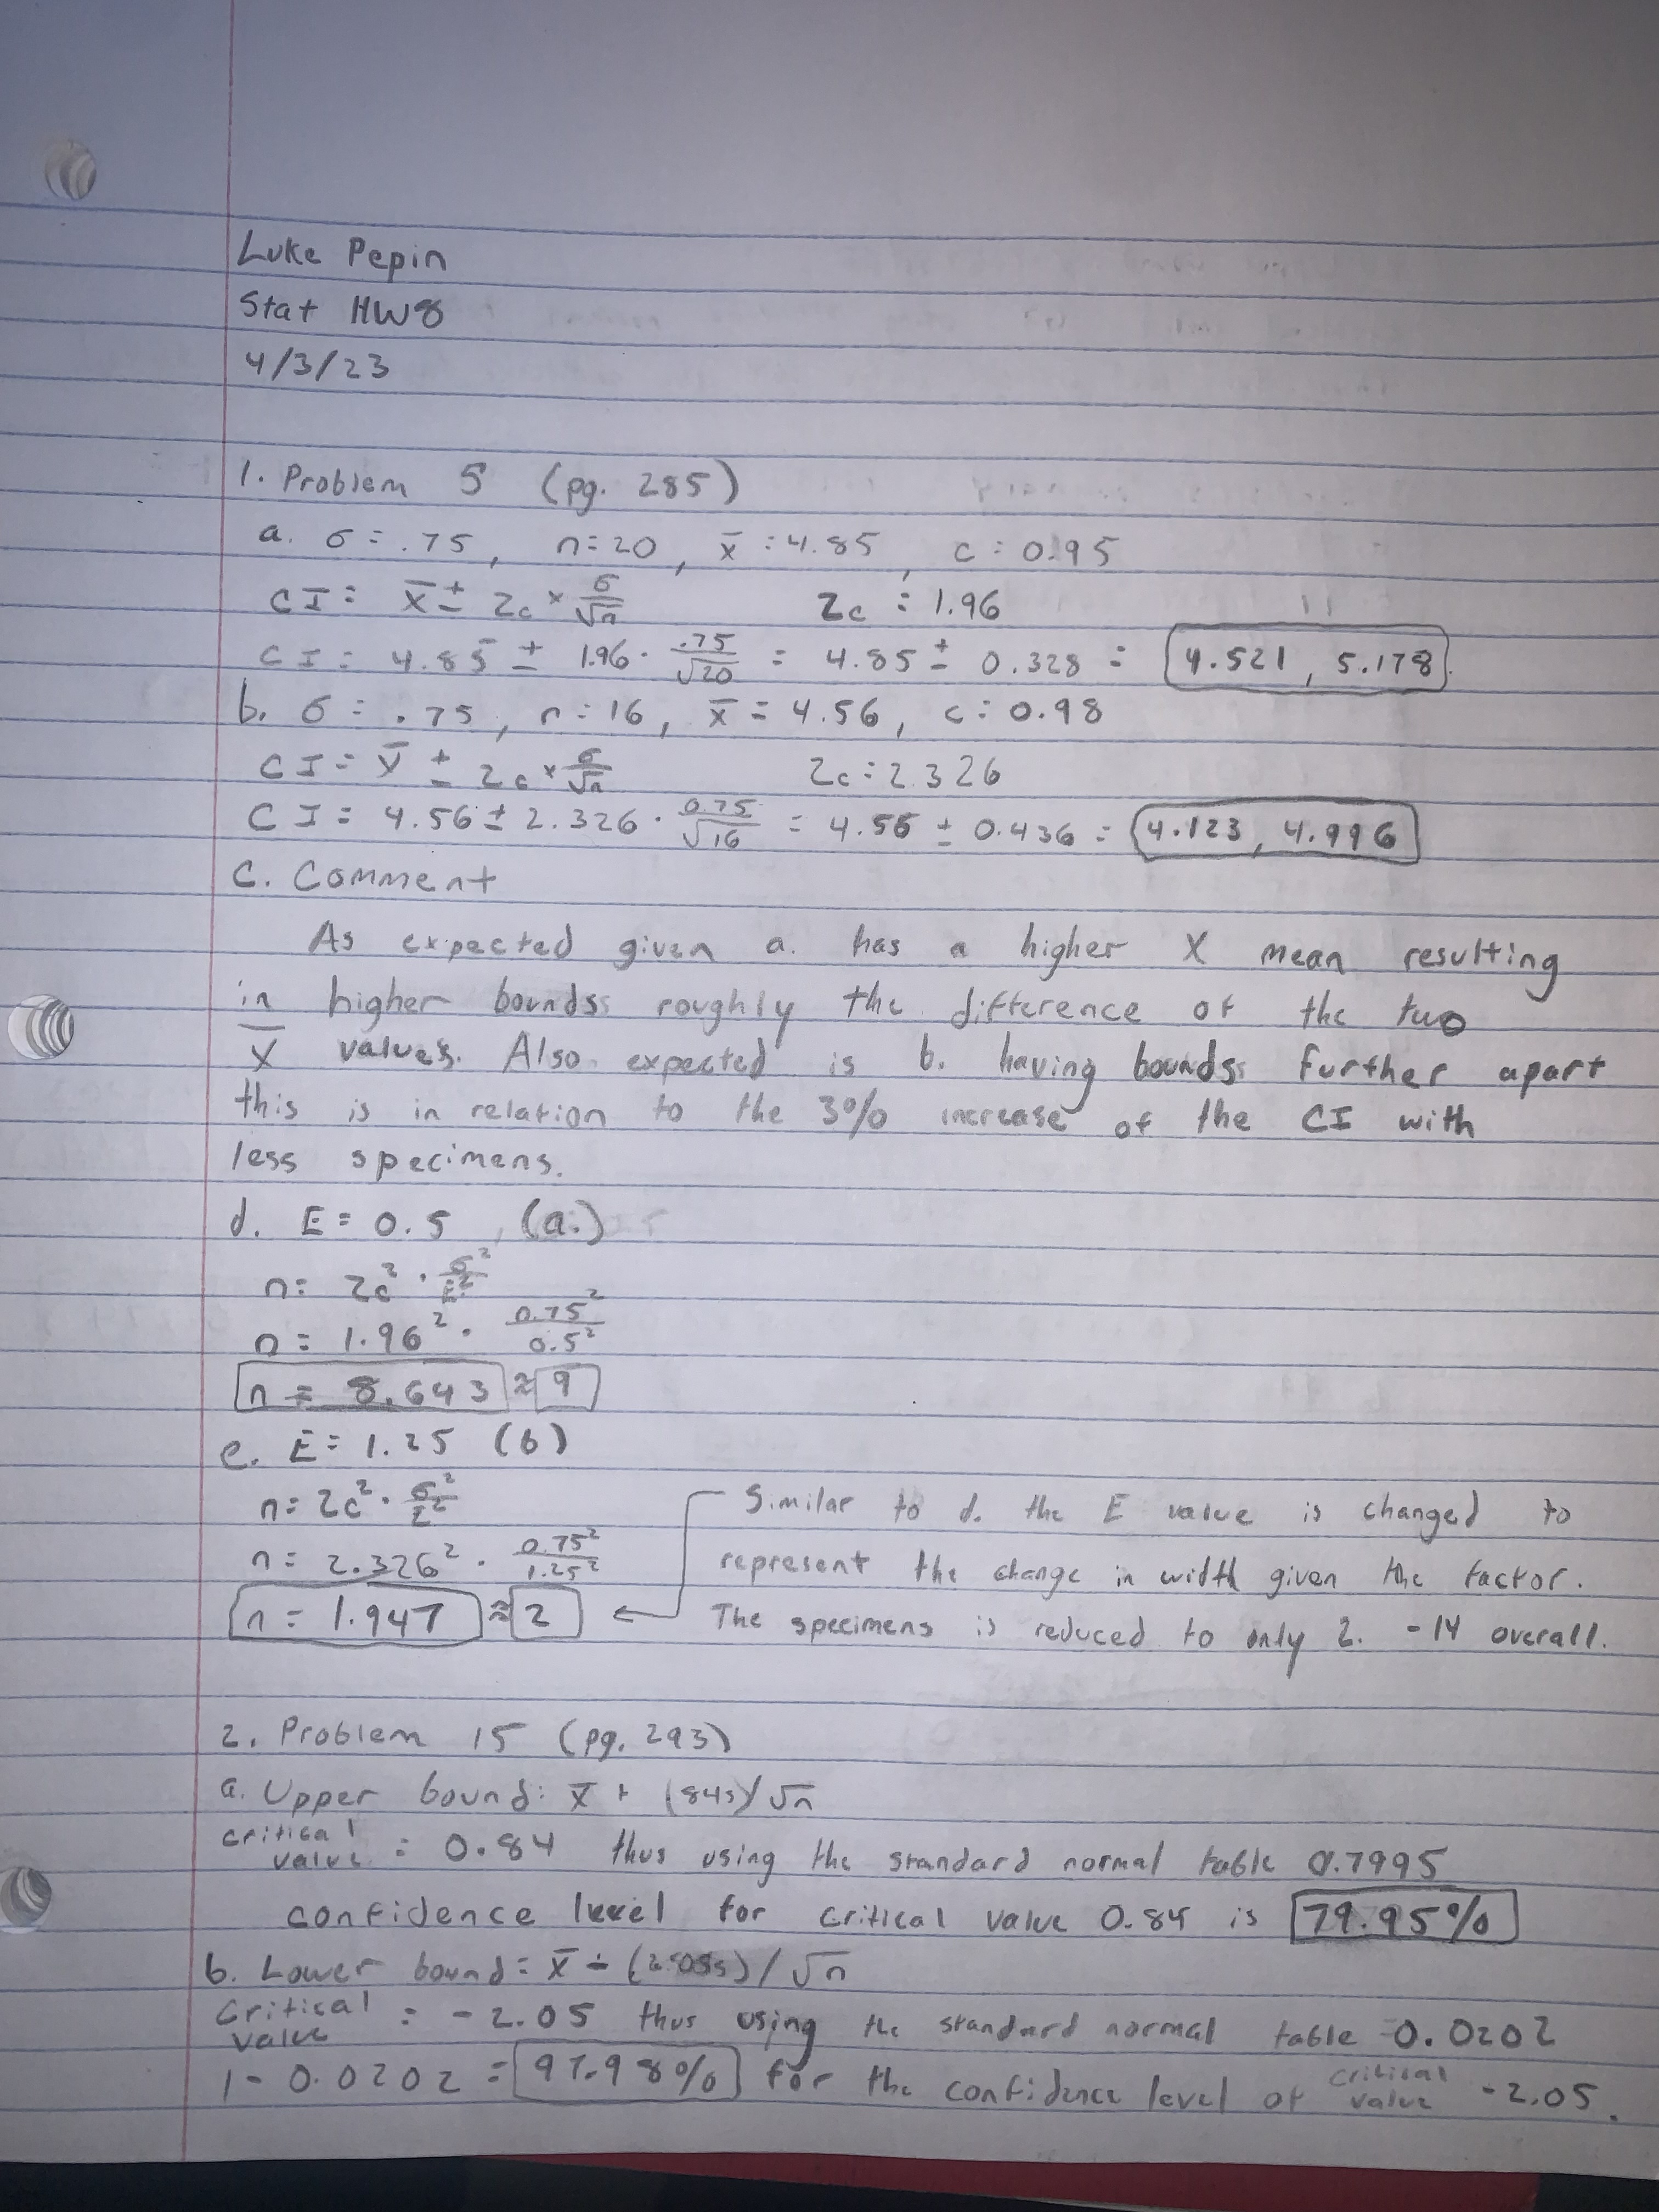 Luke Pepin
Stat HW8
4/3/23
1. Problem 5 (pg. 285)
a. σ = .75, n = 20, x̄ = 4.85, c = 0.95
CI = x̄ ± Zc × σ/√n Zc = 1.96
CI = 4.85 ± 1.96 · .75/√20 = 4.85 ± 0.328 = 4.521, 5.178
b. σ = .75, n = 16, x̄ = 4.56, c = 0.98
CI = x̄ ± Zc × σ/√n Zc = 2.326
CI = 4.56 ± 2.326 · 0.75/√16 = 4.56 ± 0.436 = 4.123, 4.996
C. Comment
As expected given a. has a higher X mean resulting
in higher bounds roughly the difference of the two
X̄ values. Also expected is b. having bounds further apart
this is in relation to the 3% increase of the CI with
less specimens.
d. E = 0.5, (a.)
n = Zc² · σ²/E²
n = 1.96² · 0.75²/0.5²
n = 8.643 ≈ 9
e. E = 1.25 (b)
n = Zc² · σ²/E² Similar to d. the E value is changed to
n = 2.326² · 0.75²/1.25² represent the change in width given the factor.
n = 1.947 ≈ 2 ← The specimens is reduced to only 2. -14 overall.
2. Problem 15 (pg. 293)
a. Upper bound: x̄ + (84s)/√n
critical value = 0.84 thus using the standard normal table 0.7995
confidence level for critical value 0.84 is 79.95%
b. Lower bound = x̄ - (2.05s)/√n
Critical value = -2.05 thus using the standard normal table 0.0202
1 - 0.0202 = 97.98% for the confidence level of critical value -2.05.